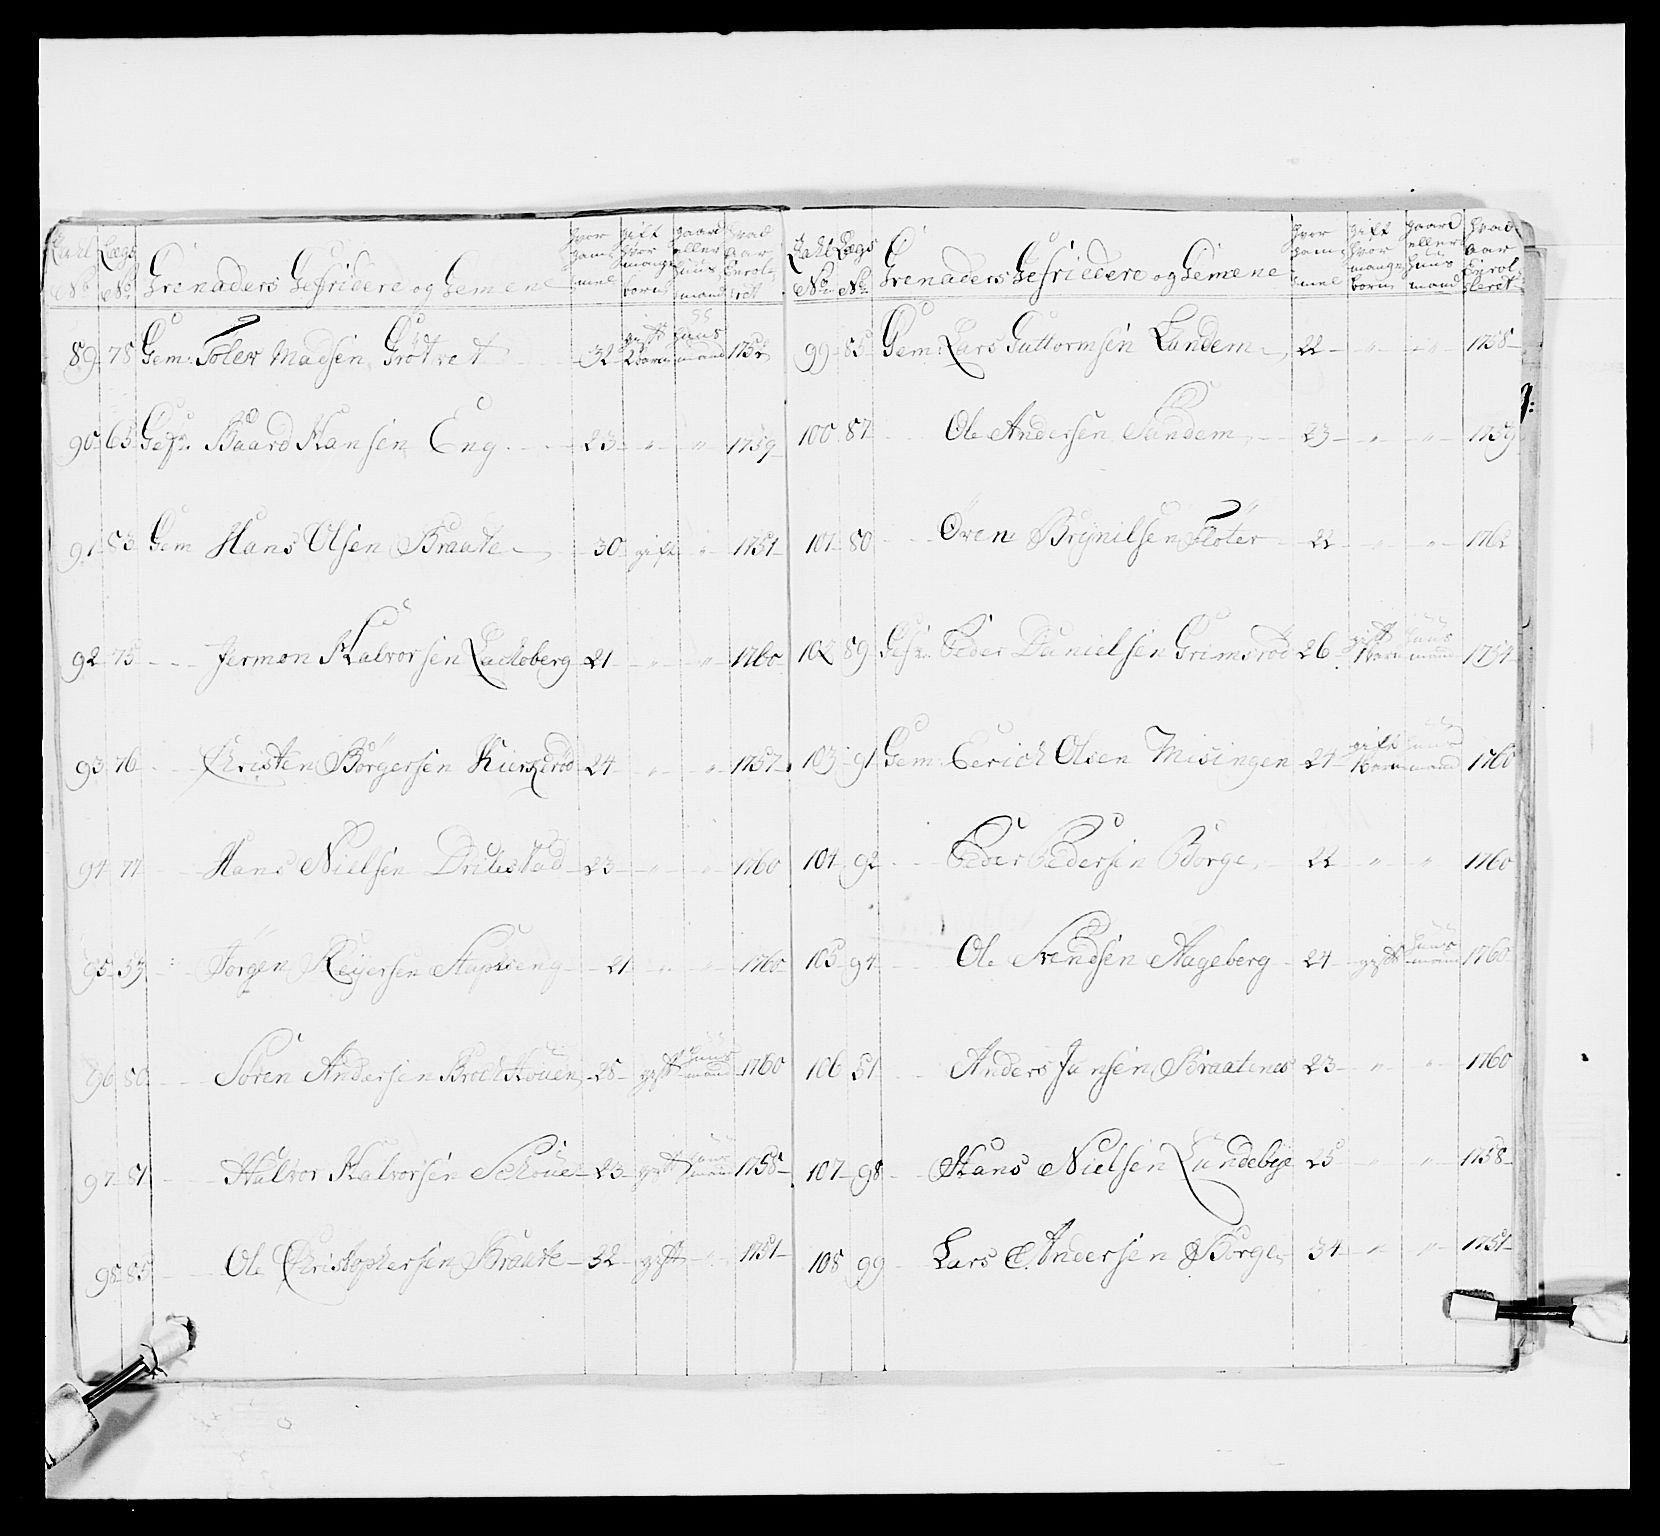 Tahl No Lægs No Grenaders Gefriedere og Gemene hvor gammel gift hvor mange børn gaard eller huus mand hvad aar Enrolleret
89 78 Gem: Tolev Madsen Grötvet 32 gift 2 børn huus mand 1752
90 63 Gefr. Baard Hansen Eng 23 " " 1759
91 83 Gem Hans Olsen Braate 30 gift " 1751
92 75 Jermon Halvorsen Lackeberg 21 " " 1760
93 76 Christen Börgersen Kierseröd 24 " " 1757
94 77 Hans Nielsen Drilestad 23 " " 1760
95 53 Jörgen Reyersen Stapseng 21 " " 1760
96 80 Sören Andersen Brechhouen 28 gift huus mand 1760
97 81 Halvor Halvorsen Schoue 23 gift huus mand 1758
98 85 Ole Christophersen Braate 32 gift " 1751
Tahl No Lægs No Grenaders Gefriedere og Gemene hvor gammel gift hvor mange børn gaard eller huus mand hvad aar Enrolleret
99 85 Gem: Lars Guttormsen Sandem 22 " " 1758
100 87 Ole Andersen Sandem 23 " " 1759
101 80 Öven Brynilsen Flöter 22 " " 1762
102 89 Gefr. Peder Danielsen Grimsröd 26 gift 1 barn huus mand 1754
103 91 Gem: Eerich Olsen Misingen 24 gift 1 barn huus mand 1760
104 92 Peder Pedersen Borge 22 " " 1760
105 94 Ole Svendsen Aageberg 24 gift huus mand 1760
106 51 Anders Jansen Braatenes 23 " " 1760
107 98 Hans Nielsen Lundebye 25 " " 1758
108 99 Lars Andersen Borge 34 " " 1751